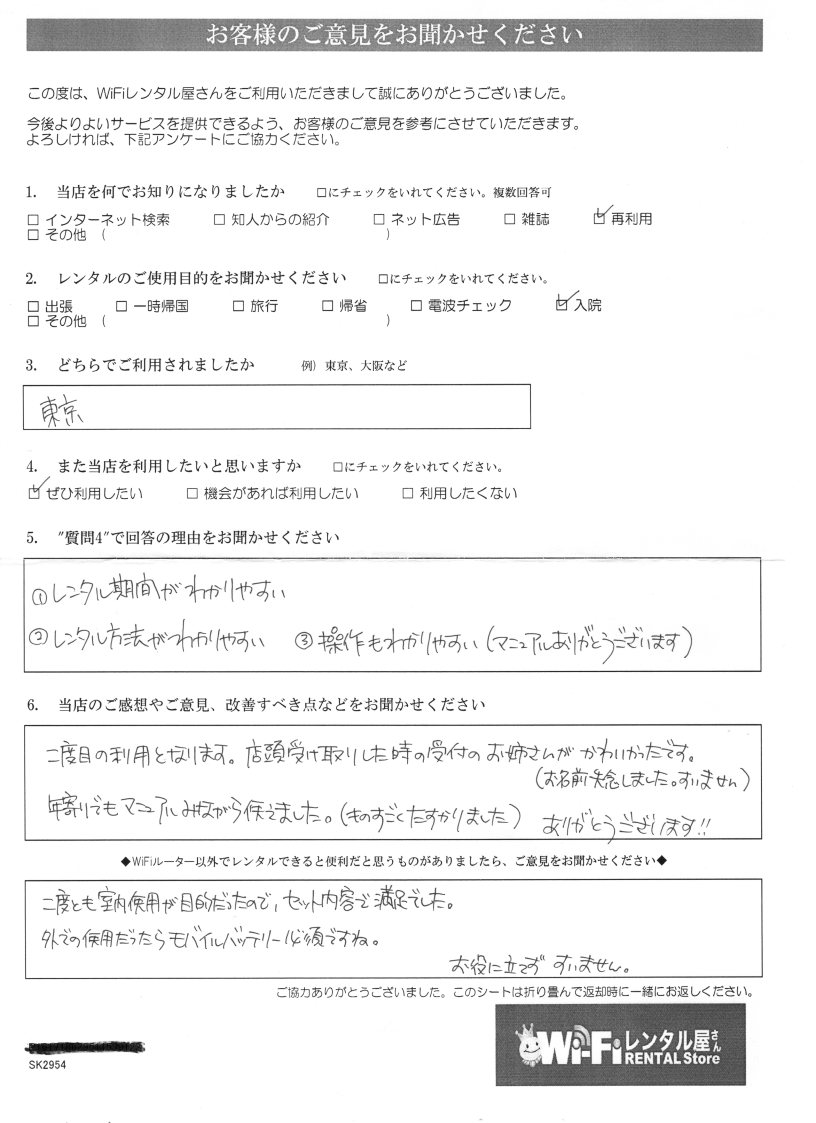 お客様のご意見をお聞かせください
この度は、WiFiレンタル屋さんをご利用いただきまして誠にありがとうございました。
今後よりよいサービスを提供できるよう、お客様のご意見を参考にさせていただきます。
よろしければ、下記アンケートにご協力ください。
1. 当店を何でお知りになりましたか □にチェックをいれてください。複数回答可
□ インターネット検索 □ 知人からの紹介 □ ネット広告 □ 雑誌 ☑ 再利用
□ その他 ( )
2. レンタルのご使用目的をお聞かせください □にチェックをいれてください。
□ 出張 □ 一時帰国 □ 旅行 □ 帰省 □ 電波チェック ☑ 入院
□ その他 ( )
3. どちらでご利用されましたか 例）東京、大阪など
東京
4. また当店を利用したいと思いますか □にチェックをいれてください。
☑ ぜひ利用したい □ 機会があれば利用したい □ 利用したくない
5. ″質問4″で回答の理由をお聞かせください
①レンタル期間がわかりやすい
②レンタル方法がわかりやすい ③操作もわかりやすい(マニュアルありがとうございます)
6. 当店のご感想やご意見、改善すべき点などをお聞かせください
二度目の利用となります。店頭受け取りした時の受付のお姉さんがかわいかったです。
(お名前失念しました。すいません)
年寄りでもマニュアルみながら使えました。(ものすごくたすかりました) ありがとうございます!!
◆WiFiルーター以外でレンタルできると便利だと思うものがありましたら、ご意見をお聞かせください◆
二度とも室内使用が目的だったので、セット内容で満足でした。
外での使用だったらモバイルバッテリー必須ですね。
お役に立てず すいません。
ご協力ありがとうございました。このシートは折り畳んで返却時に一緒にお返しください。
SK2954
Wi-Fiレンタル屋さん
RENTAL Store